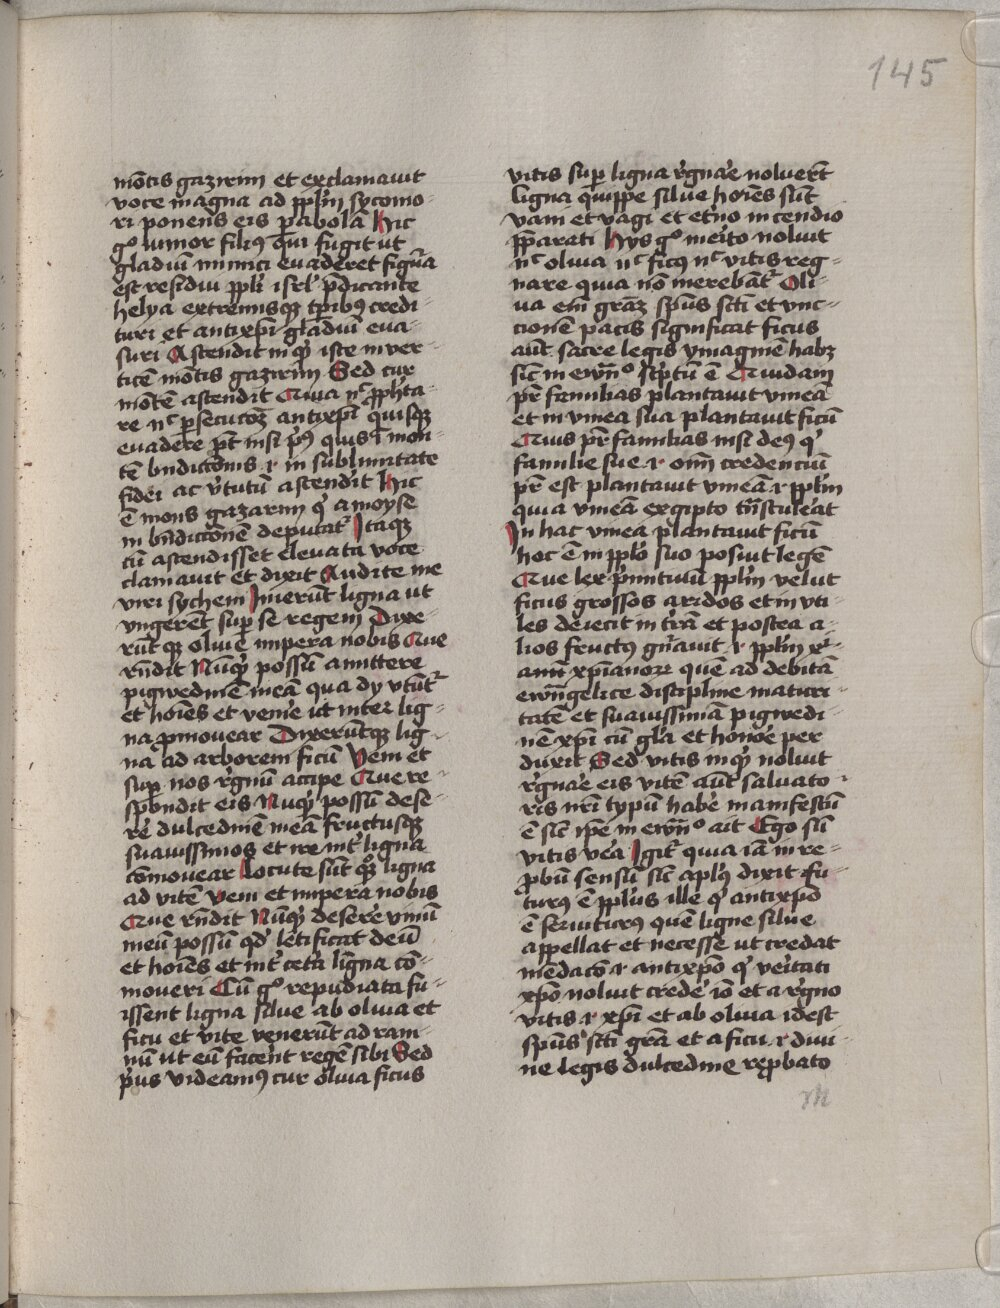 145
mōtis gazirim et exclamauit
voce magna ad pp̄lm̄ sycomo
ri ponens eis p̄abolā Hic
gͦ iunior filiꝰ qui fugit ut
gladiū inimici euaderet figūa
est residui pp̄li isrl̄ p̄dicante
helya extremisqꝫ tp̄ibꝫ credi
turi et antixp̄i gladiū eua
suri Ascendit inqͥ iste in ver
ticē mōtis gazirim Sed cur
mōtē ascendit Quia nͨ pph̄ta
re nͨ p̄secucōꝫ antixp̄i quisqꝫ
euadere pt̄ nisi pͥꝰ quis ī mon
tē bn̄dictōnis ⁊ in sublimitate
fidei ac v̓tutū ascendit Hic
ē mons gazarim qͥ a moyse
in bn̄dictōnē deputatᷣ Itaqꝫ
cū ascendisset eleuata voce
clamauit et dixit Audite me
viri sychem Inierūt ligna ut
vngerēt sup̱ se regem Dixe
rūt qꝫ oliuē impera nobis Que
rn̄dit Nūqͥ possū amittere
pigwedinē meā qua dy vtūtᷣ
et hoīes et venīe ut inter lig
na p̱mouear Dixerūtqꝫ lig
na ad arborem ficū Veni et
sup̱ nos r̓gnū accipe Que re
spondit eis Nūqͥ possū dese
re̓ dulcedinē meā fructusqꝫ
suauissimos et ire int̓ ligna
cōmouear Locute sūt qꝫ ligna
ad vitē Veni et impera nobis
Que rn̄dit Nūqͥ desere̓ vinū
meū possū qd̓ letificat deū
et hoīes et int̓ cetā ligna cō
moueri Cū gͦ repudiata fu
issent ligna silue ab oliua et
ficu et vite venerūt ad ram
nū ut eū facēnt regē sibi Sed
pͥus videamꝰ cur oliua ficus
vitis sup̱ ligna r̓gnāe noluerēt
ligna quippe silue hoīes sūt
vani et vagi et et̓no incendio
p̄parati Hijs gͦ meīto noluit
nͨ oliua nͨ ficꝰ nͨ vitis reg
nare quia nō merebātᷣ Oli
ua em̄ graꝫ sp̄us sc̄ti et vnc
cionē pacis significat ficus
aūt sacre legis ymaginē habꝫ
sic̄ in ewn̄ͦ scͥptū ē Quidam
pr̄ familias plantauit vineā
et in vinea sua plantauit ficū
Quis pr̄ familias nisi deꝰ qͥ
familie sue ⁊ oīm credenciū
pr̄ est plantauit vineā ⁊ pp̄lm̄
quia vineā ex egipto tn̄stuleāt
In hac vinea plantauit ficū
hoc ē in pp̄lo suo posuit legē
Que lex pͥmitiuū pp̄lm̄ velut
ficus grossos aridos et in vti
les deiecit in trā et postea a
lios fructꝰ gn̄auit ⁊ pp̄lm̄ xͥ
anū xp̄ianoꝝ quē ad debitā
ewn̄gelice discipline maturi
tatē et suauissimā pigwedi
nē xp̄i cū gl̄a et honōe per
duxit Sed vitis inqͥ noluit
r̓gnāe eis vitē aūt saluato
ris nr̄i typū habe̓ manifestū
ē sic̄ ip̄e in ewn̄ͦ ait Ego sū
vitis vēa Igitᷣ quia iā in re
p̱bū sensū sic̄ aplꝰ dixit fu
turꝰ ē pp̄lus ille qͥ antixp̄o
ē seruiturꝰ quē ligne silue
appellat et necesse ut credat
mēdacō ⁊ antixp̄o qͥ veītati
xp̄o noluit crede̓ iō et a r̓gno
vitis ⁊ xp̄i et ab oliua idest
sp̄us sc̄ti gr̄a et a ficu ⁊ diui
ne legis dulcedine rep̱bato